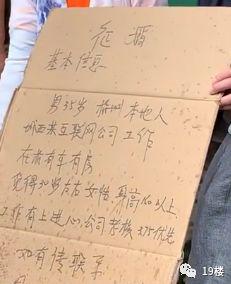 征婚
基本信息
男35岁 杭州本地人
城西某互联网公司工作
在杭有车有房
觅得30岁左右女性,身高160以上,
工作有上进心,公司考核3.75优先
如有情
19楼